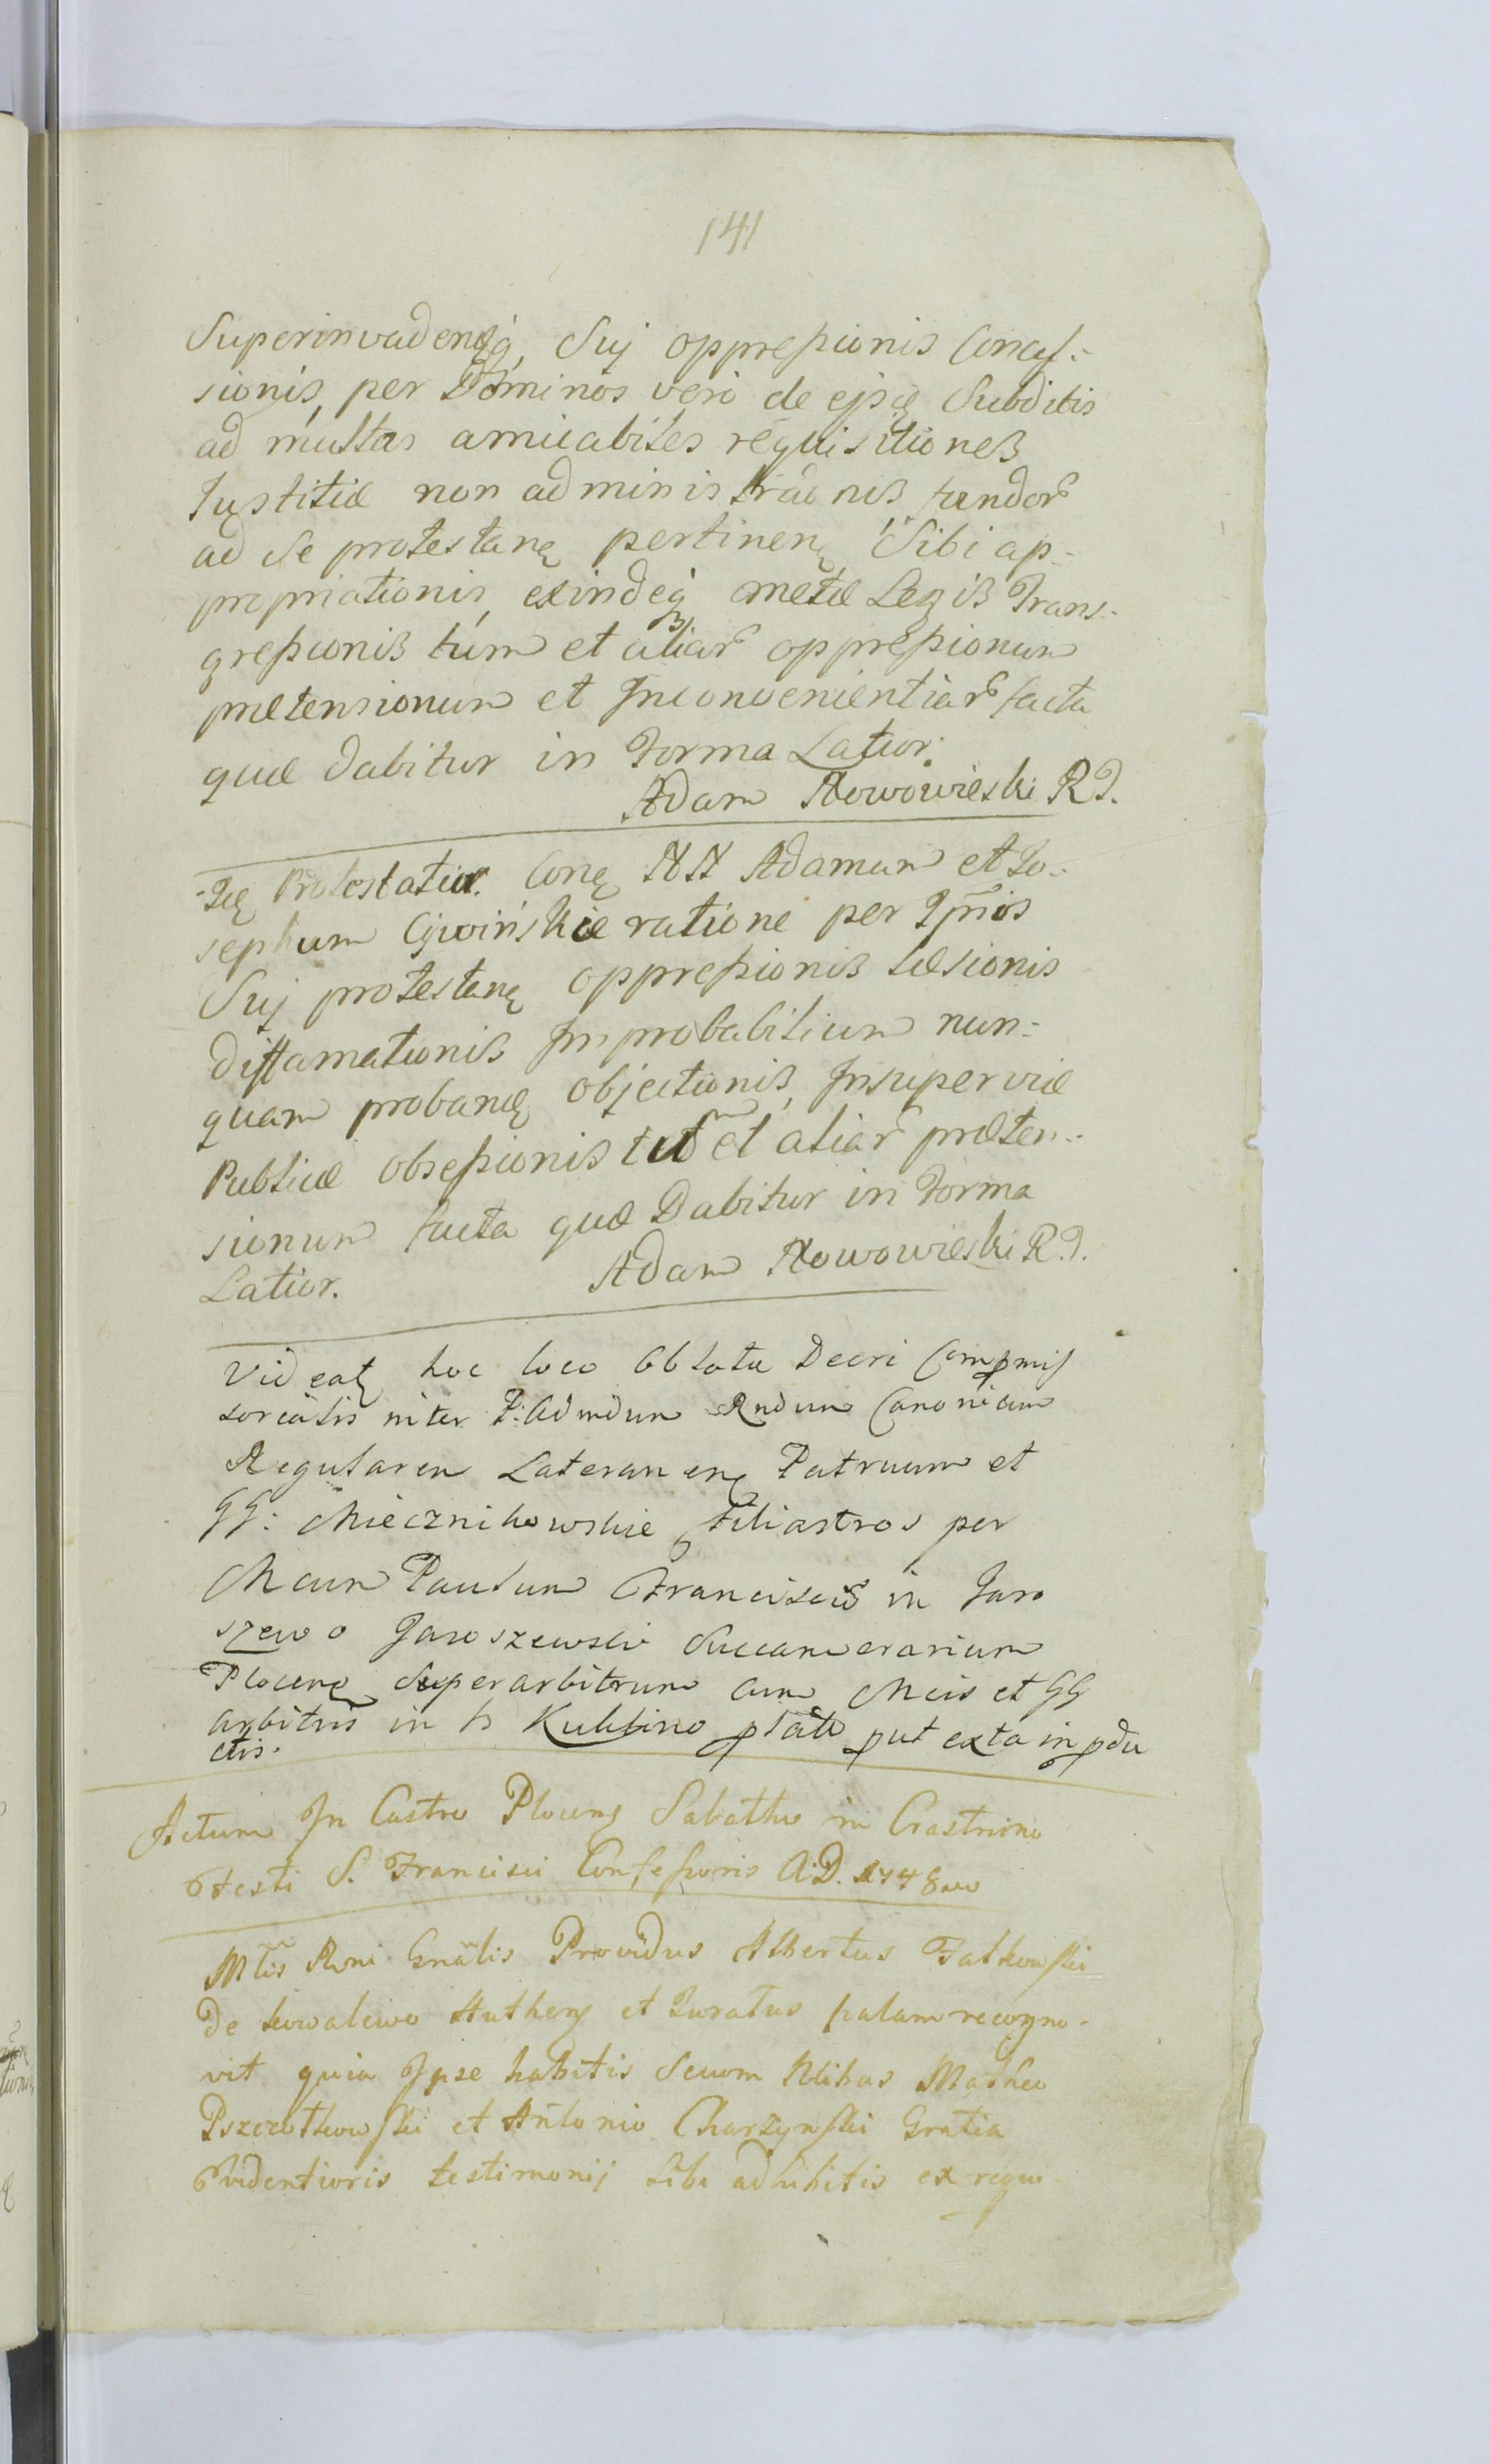 141
Superinvadenꝗ, Suj oppressionis Concus-
sionis, per Dominos vero de ejsꝗ Subditis
ad multas amicabiles requisitiones
Justitiæ non administraonis fundor
ad Se protestanꝗ pertinenꝗ Sibi ap-
propriationis, exindeꝗ metæ Legis Trans-
gressionis tum et aliar oppressionum
prætensionum et Inconvenientiar facta
quæ dabitur in Forma Latior.
Adam Nowowieski R J.
Protestatio. Conꝗ NN Adamum et Jo-
sephum Cywińskie ratione per Ipsos
Suj protestanꝗ oppressionis læsionis
diffamationis Improbabilium nun-
quam probanꝗ objectionis, Insuper viæ
Publicæ obsessionis tum et aliar præten-
sionum facta quæ Dabitur in Forma
Latior. Adam Nowowieski R.J.
Videatꝗ hoc loco Oblata Decri Compmis
sorialis inter P: Admdum Rndum Canonicum
Regularem Lateranenꝗ Patruum et
GG: Miecznikowskie Filiastros per
Mcum Paulum Franciscum in Jaro
szewo Jaroszewski Succamerarium
Plocenꝗ Superarbitrum cum Mcis et GG
arbitris in Kuklino plati put exta in pdu
ctis.
Actum In Castro Plocenꝗ Sabatho in Crastrino
Festi S. Francisci Confessoris A.D. 1748vo
Mlis Rvni Gnalis Providus Albertus Falkowski
De Kowalewo Authenꝗ et Juratus palam recogno-
vit quia Ipse habitis Secum Nlibus Matheo
Pszczolkowski et Antonio Charzynski Gratia
Evidentioris testimonij Sibi adhibitis ex requi-